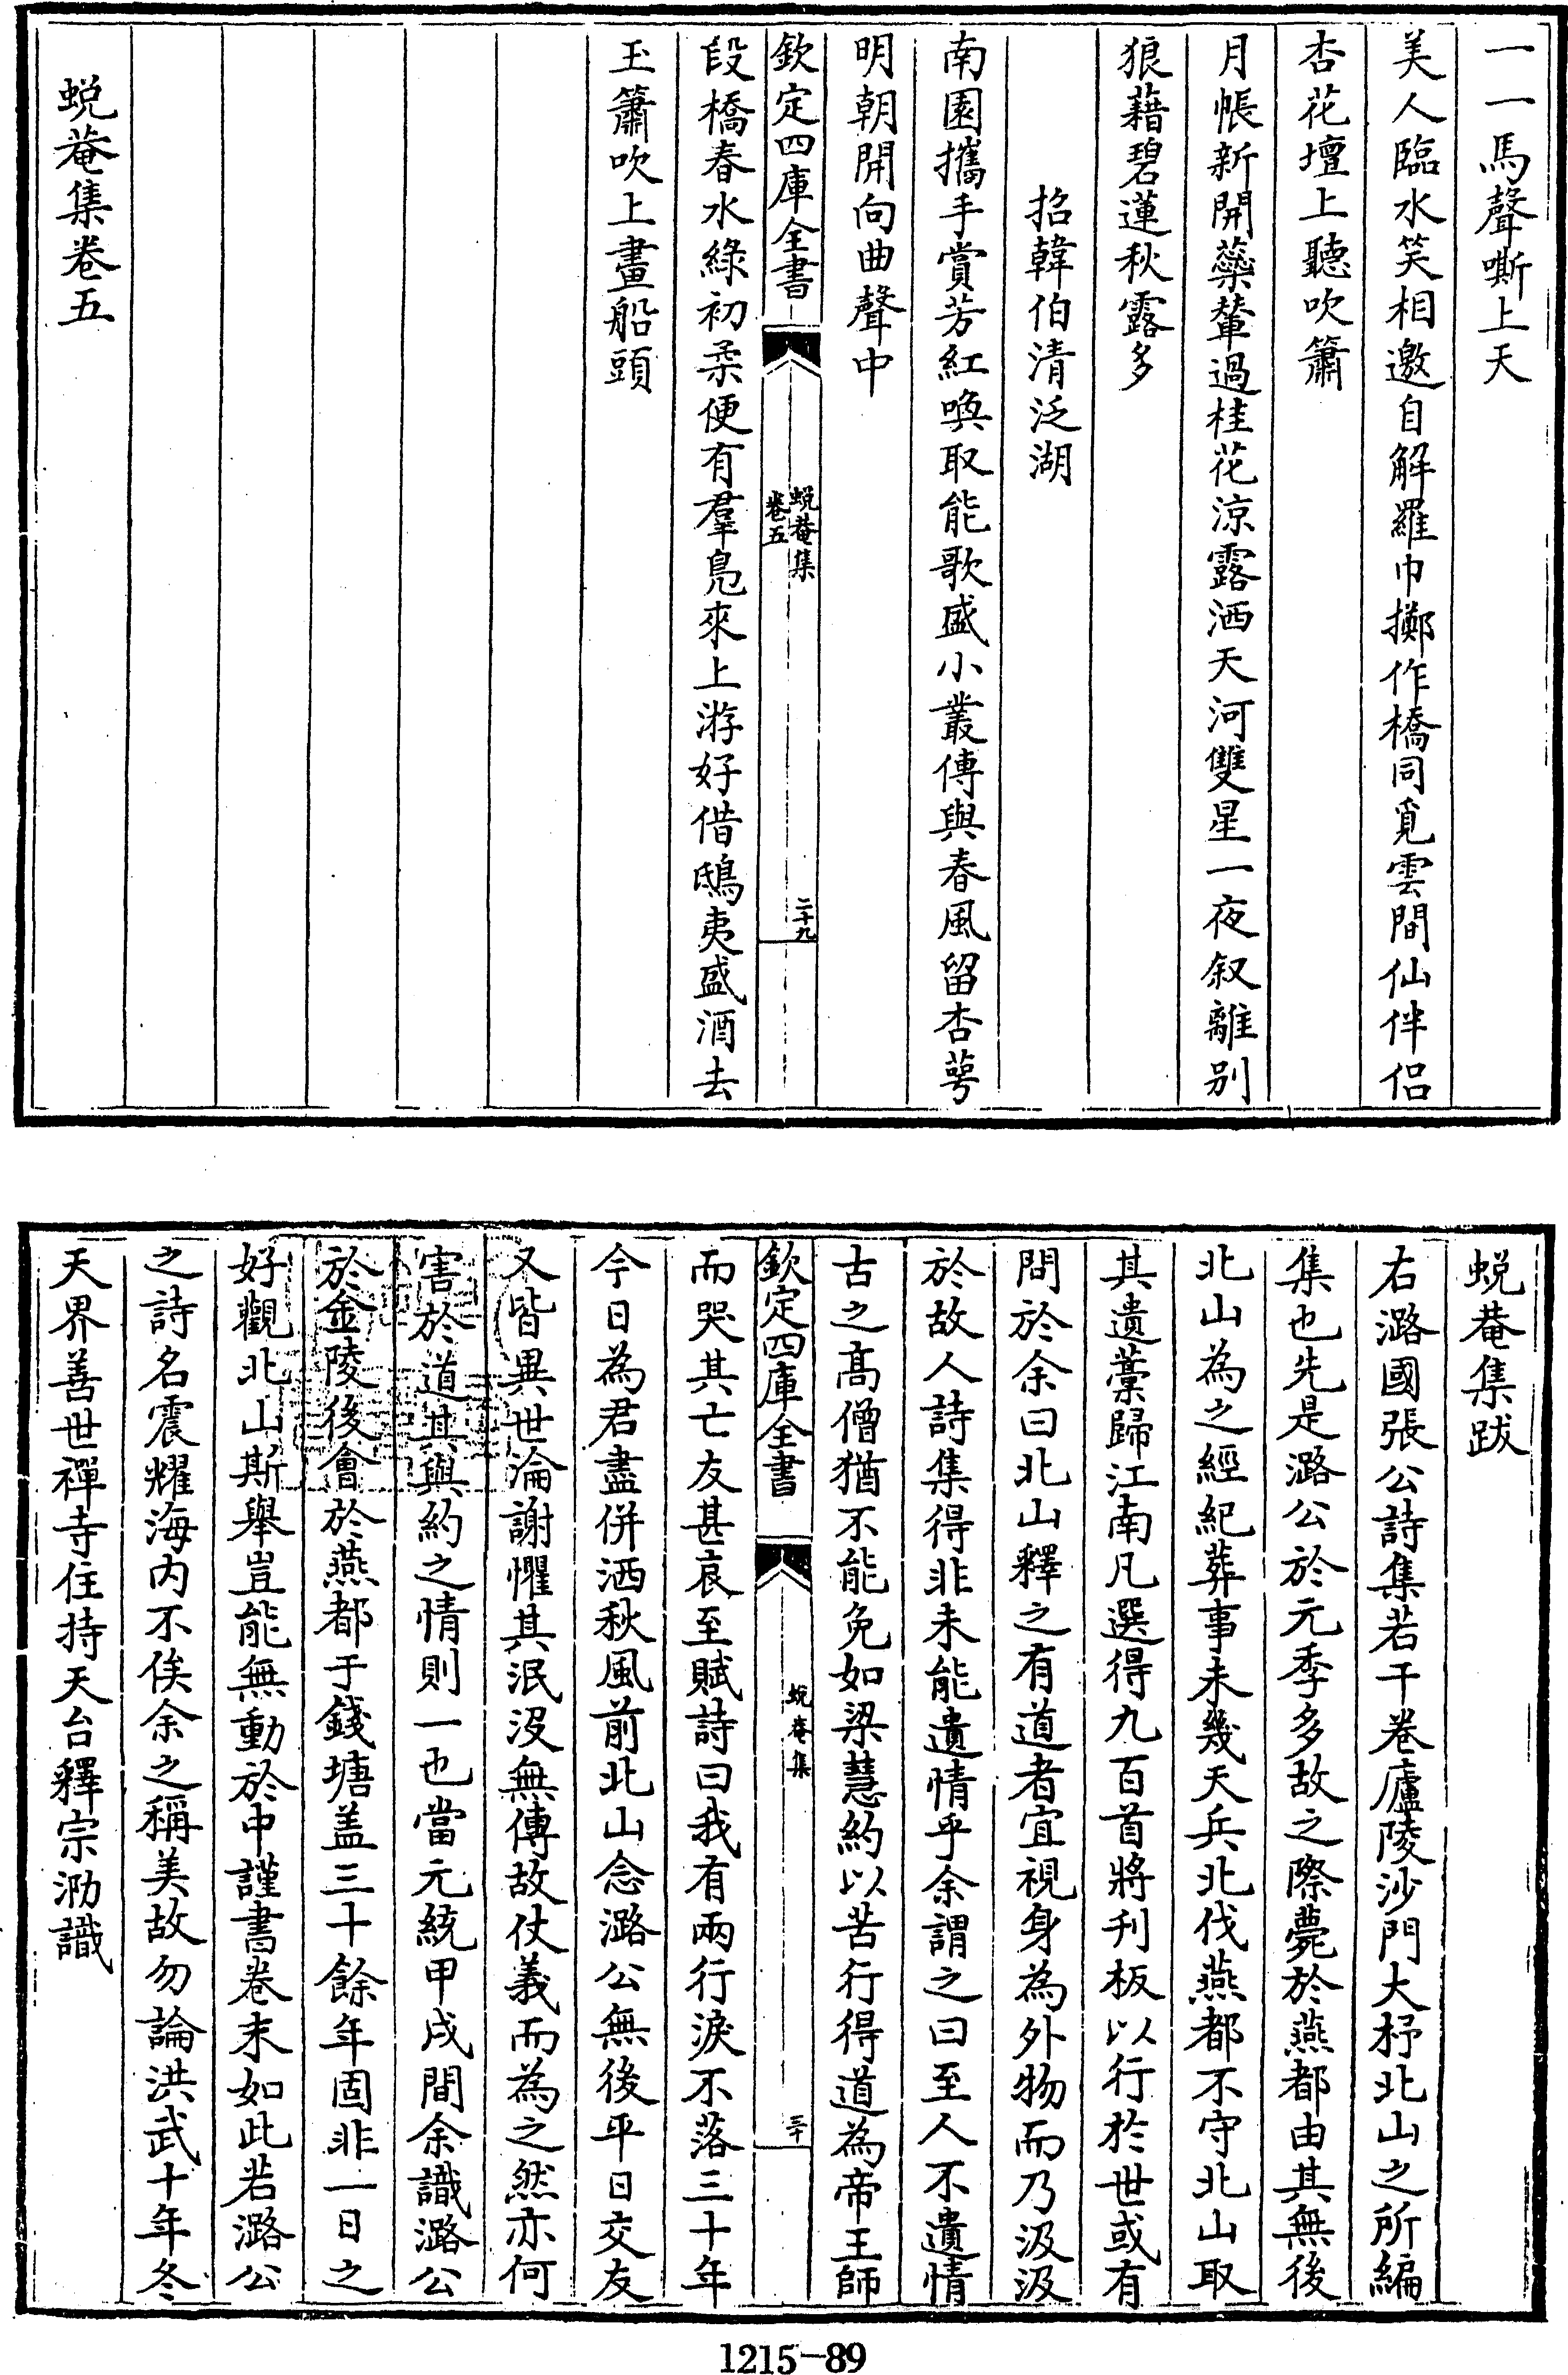 一一馬聲嘶上天
美人臨水笑相邀自解羅巾擲作橋同覓雲間仙伴侣
杏花壇上聽吹簫
月帳新開蘂輦過桂花涼露洒天河雙星一夜叙離别
狼藉碧蓮秋露多
招韓伯清泛湖
南園攜手賞芳紅喚取能歌盛小叢傳與春風留杏萼
明朝開向曲聲中
欽定四庫全書
蜕菴集
卷五
二十九
段橋春水綠初柔便有羣鳧來上游好借鴟夷盛酒去
玉簫吹上畫船頭
蜕菴集卷五
蜕菴集跋
右潞國張公詩集若干卷廬陵沙門大杼北山之所編
集也先是潞公於元季多故之際薨於燕都由其無後
北山為之經紀葬事未幾天兵北伐燕都不守北山取
其遺藁歸江南凡選得九百首將刋板以行於世或有
問於余曰北山釋之有道者宜視身為外物而乃汲汲
於故人詩集得非未能遺情乎余謂之曰至人不遺情
古之髙僧猶不能免如梁慧約以苦行得道為帝王師
欽定四庫全書
蜕菴集
三十
而哭其亡友甚哀至賦詩曰我有兩行淚不落三十年
今日為君盡併洒秋風前北山念潞公無後平日交友
又皆異世淪謝懼其泯沒無傳故仗義而為之然亦何
害於道其與約之情則一也當元統甲戌間余識潞公
於金陵後會於燕都于錢塘盖三十餘年固非一日之
好觀北山斯舉豈能無動於中謹書卷末如此若潞公
之詩名震耀海内不俟余之稱美故勿論洪武十年冬
天界善世禪寺住持天台釋宗泐識
1215-89